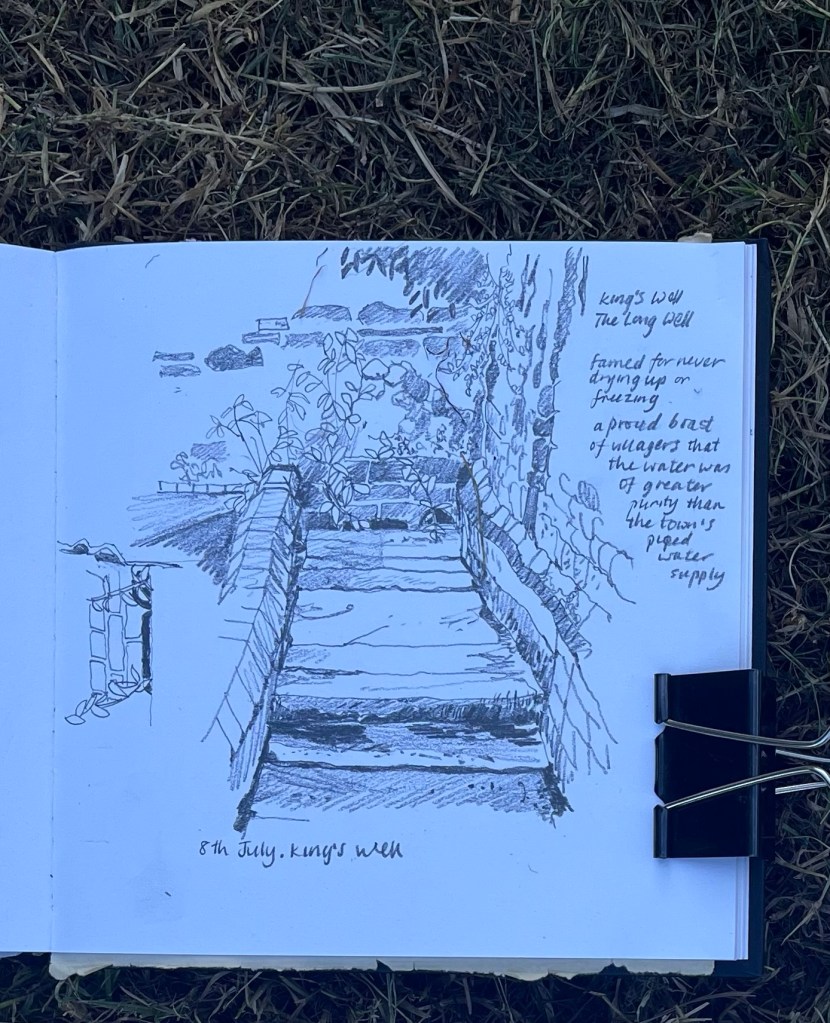 King's Well
The Long Well
famed for never
drying up or
freezing
a proud boast
of villagers that
the water was
of greater
purity than
the town's
piped
water
supply
8th July. King's Well